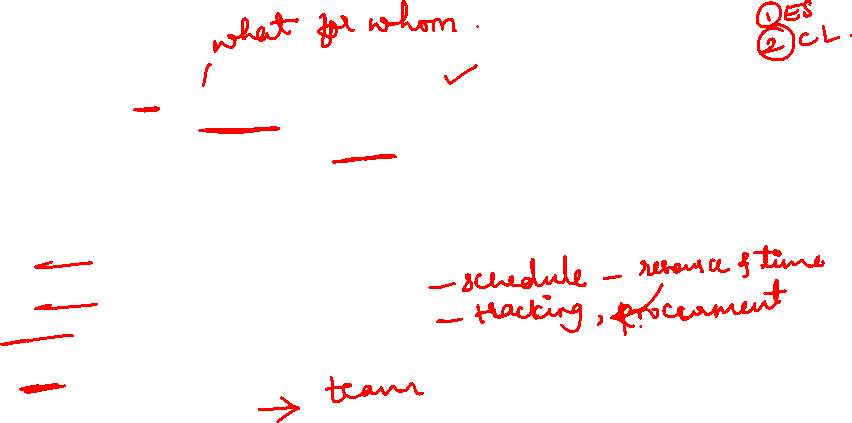 what for whom.
① ES
② CL.
- schedule - resource & time
- tracking, procurement
→ team